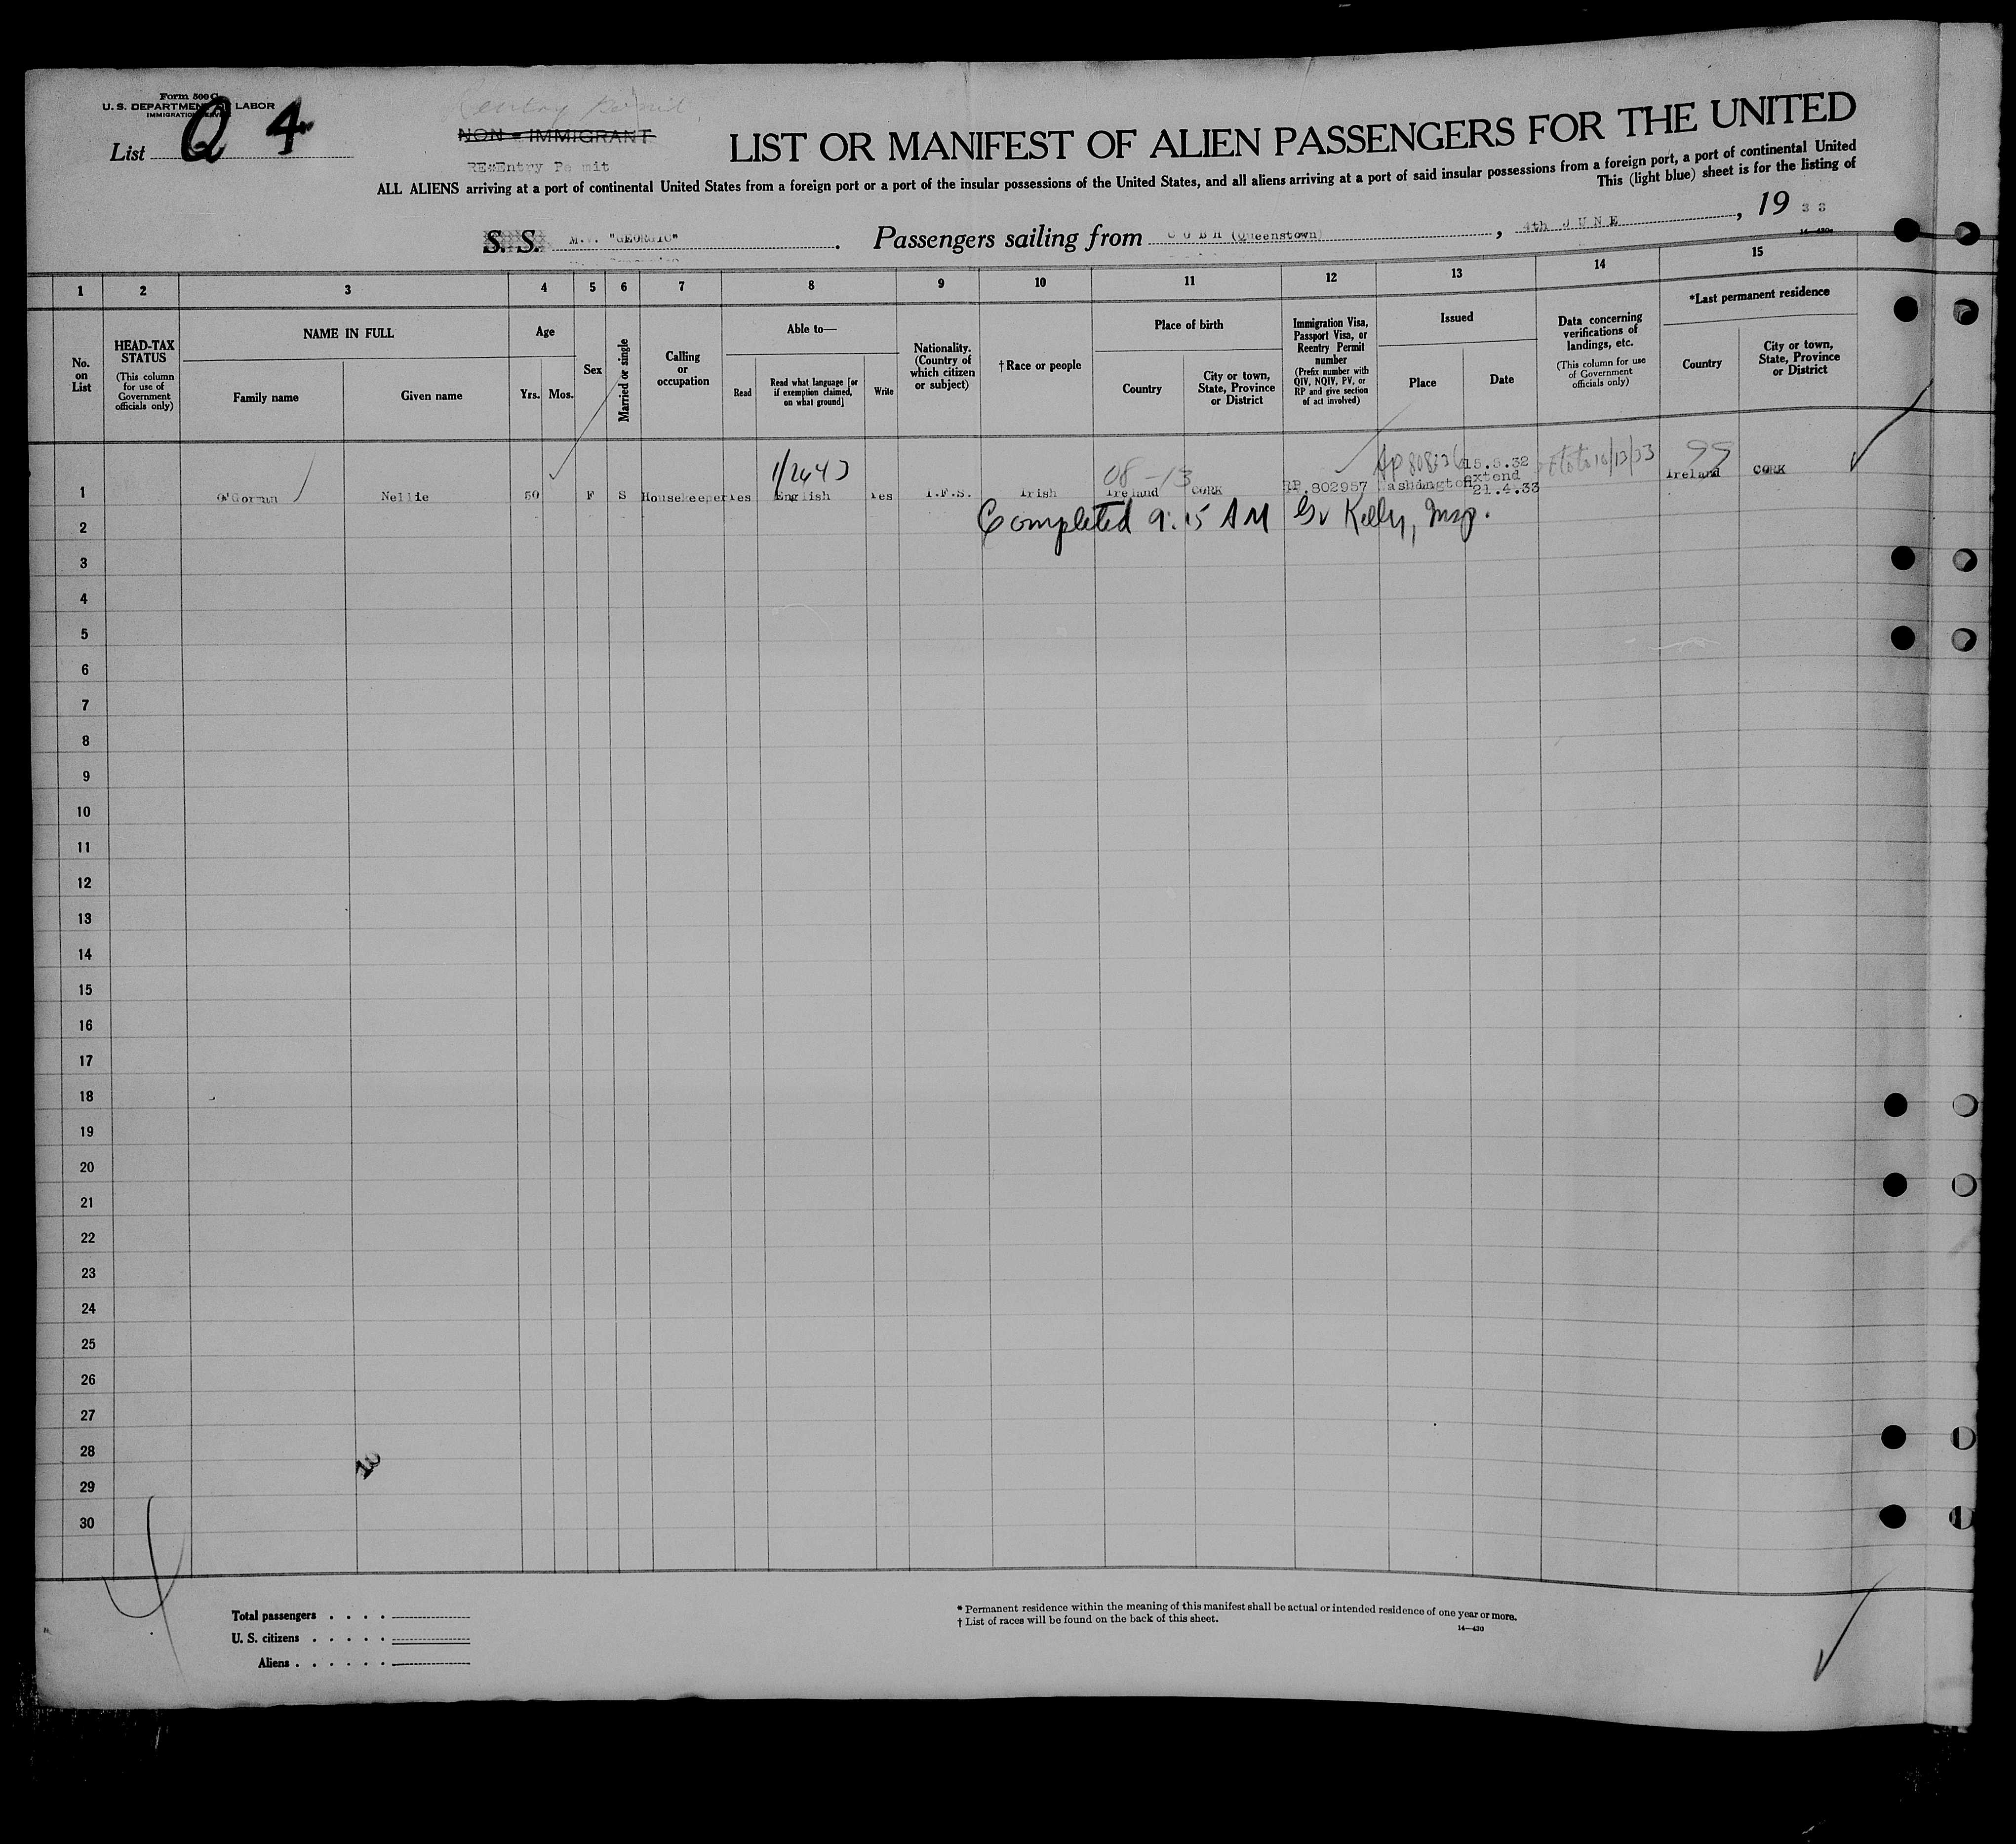 Form 500 C
U. S. DEPARTMENT OF LABOR
IMMIGRATION SERVICE
List Q 4
NON - IMMIGRANT
REEntry Pe mit
LIST OR MANIFEST OF ALIEN PASSENGERS FOR THE UNITED
ALL ALIENS arriving at a port of continental United States from a foreign port or a port of the insular possessions of the United States, and all aliens arriving at a port of said insular possessions from a foreign port, a port of continental United
This (light blue) sheet is for the listing of
S. S. M.V. "GEORGIC". Passengers sailing from COBH (Queenstown), 4th JUNE, 19 33
14—430
1 2 3 4 5 6 7 8 9 10 11 12 13 14 15
No. on List
HEAD-TAX STATUS
(This column for use of Government officials only)
NAME IN FULL
Family name
Given name
Age
Yrs. Mos.
Sex
Married or single
Calling or occupation
Able to—
Read
Read what language [or if exemption claimed, on what ground]
Write
Nationality. (Country of which citizen or subject)
†Race or people
Place of birth
Country
City or town, State, Province or District
Immigration Visa, Passport Visa, or Reentry Permit number
(Prefix number with QIV, NQIV, PV, or RP and give section of act involved)
Issued
Place
Date
Data concerning verifications of landings, etc.
(This column for use of Government officials only)
*Last permanent residence
Country
City or town, State, Province or District
08-13
99
1 O'Gorman Nellie 50 F S Housekeeper Yes English Yes I.F.S. Irish Ireland CORK RP.802957 ashington 15.5.32 extend 21.4.33 Ireland CORK
2 Completed 9:15 AM Kelly, Insp.
3
4
5
6
7
8
9
10
11
12
13
14
15
16
17
18
19
20
21
22
23
24
25
26
27
28
29
30
Total passengers . . . .
U. S. citizens . . . . .
Aliens . . . . . .
* Permanent residence within the meaning of this manifest shall be actual or intended residence of one year or more.
† List of races will be found on the back of this sheet.
14—430